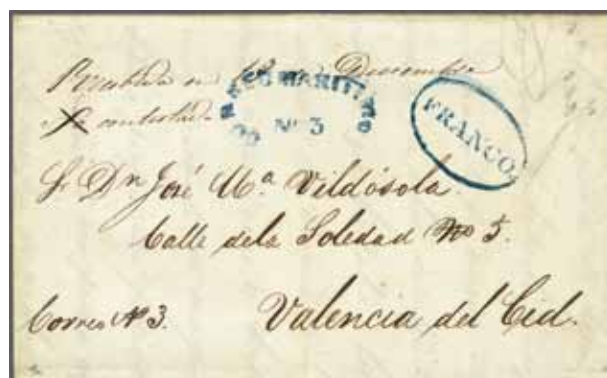 Recibida en 18 de Diciembre
Contestada
CORREO MARITIMO
Nº 3
FRANCO.
Sr. Dn José Mª Vildósola.
Calle dela Soledad No 5.
Correo Nº 3.
Valencia del Cid.